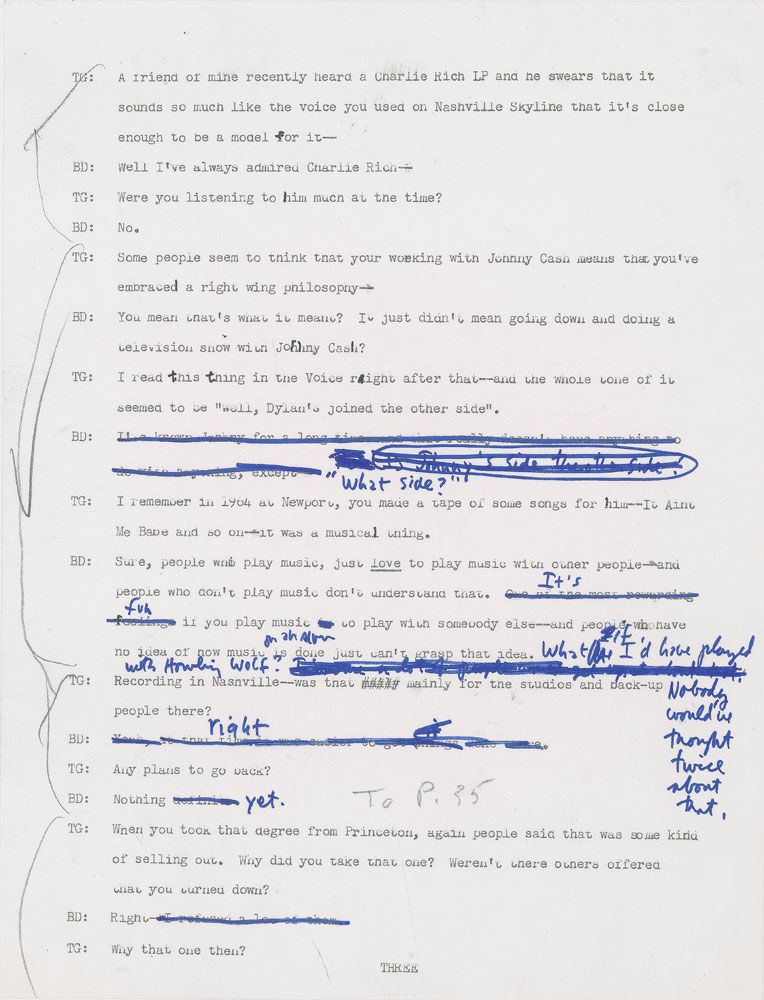 TG: A friend of mine recently heard a Charlie Rich LP and he swears that it
sounds so much like the voice you used on Nashville Skyline that it's close
enough to be a model for it--
BD: Well I've always admired Charlie Rich--
TG: Were you listening to him much at the time?
BD: No.
TG: Some people seem to think that your working with Johnny Cash means that you've
embraced a right wing philosophy--
BD: You mean that's what it meant? It just didn't mean going down and doing a
television show with Johnny Cash?
TG: I read this thing in the Voice right after that--and the whole tone of it
seemed to be "well, Dylan's joined the other side".
BD: It's known Johnny for a long time and that really doesn't have anything to
do with anything, except Is Johnny's side the other side?
"What side?"
TG: I remember in 1964 at Newport, you made a tape of some songs for him--It Aint
Me Babe and so on--it was a musical thing.
BD: Sure, people who play music, just love to play music with other people--and
people who don't play music don't understand that. One of the most rewarding It's
feelings fun if you play music to play with somebody else--and people who have
no idea of how music is done on an album just can't grasp that idea. What if I'd have played
with Howling Wolf?
Nobody
would've
thought
twice
about
that.
TG: Recording in Nashville--was that ##### mainly for the studios and back-up
people there?
BD: right
TG: Any plans to go back?
BD: Nothing definite yet. To P. 35
TG: When you took that degree from Princeton, again people said that was some kind
of selling out. Why did you take that one? Weren't there others offered
that you turned down?
BD: Right--I refused a lot of them.
TG: Why that one then?
THREE